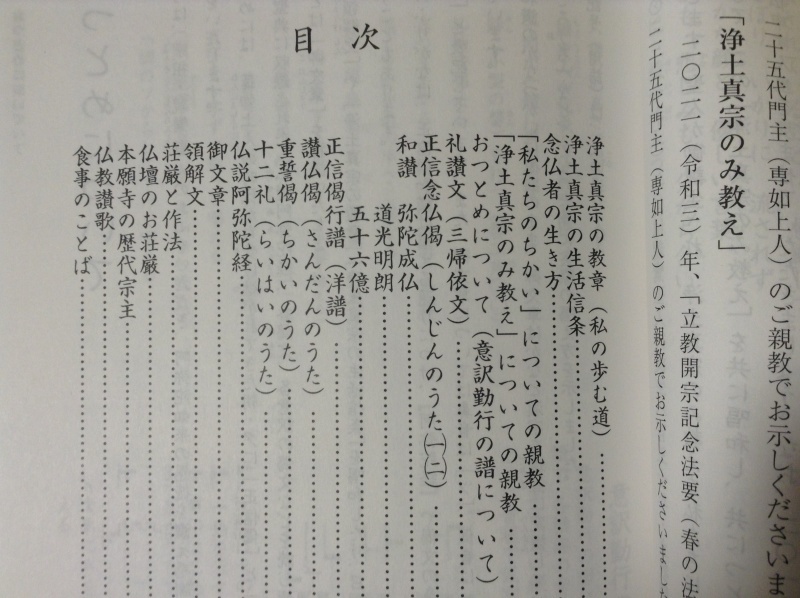 二十五代門主（専如上人）のご親教でお示しくださいま
「浄土真宗のみ教え」
二〇二一（令和三）年、「立教開宗記念法要（春の法
二十五代門主（専如上人）のご親教でお示しくださいました
目次
浄土真宗の教章（私の歩む道）
浄土真宗の生活信条
念仏者の生き方
「私たちのちかい」についての親教
「浄土真宗のみ教え」についての親教
おつとめについて（意訳勤行の譜について）
礼讃文（三帰依文）
正信念仏偈（しんじんのうた(一)(二)）
和讃 弥陀成仏
道光明朗
五十六億
正信偈行譜（洋譜）
讃仏偈（さんだんのうた）
重誓偈（ちかいのうた）
十二礼（らいはいのうた）
仏説阿弥陀経
御文章
領解文
荘厳と作法
仏壇のお荘厳
本願寺の歴代宗主
仏教讃歌
食事のことば